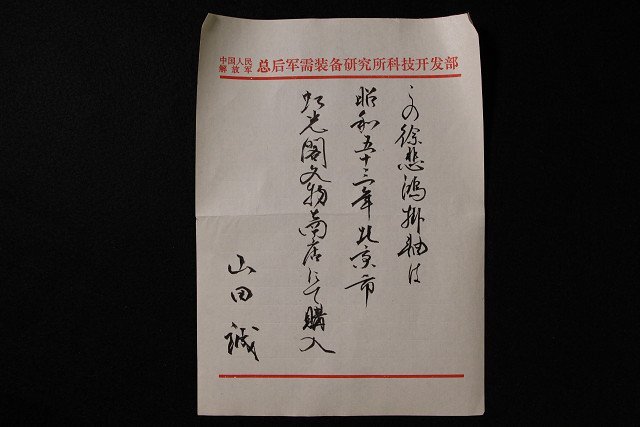 中国人民解放军 总后军需装备研究所科技开发部
この徐悲鴻掛軸は
昭和五十三年北京市
虹光閣文物商店にて購入
山田誠